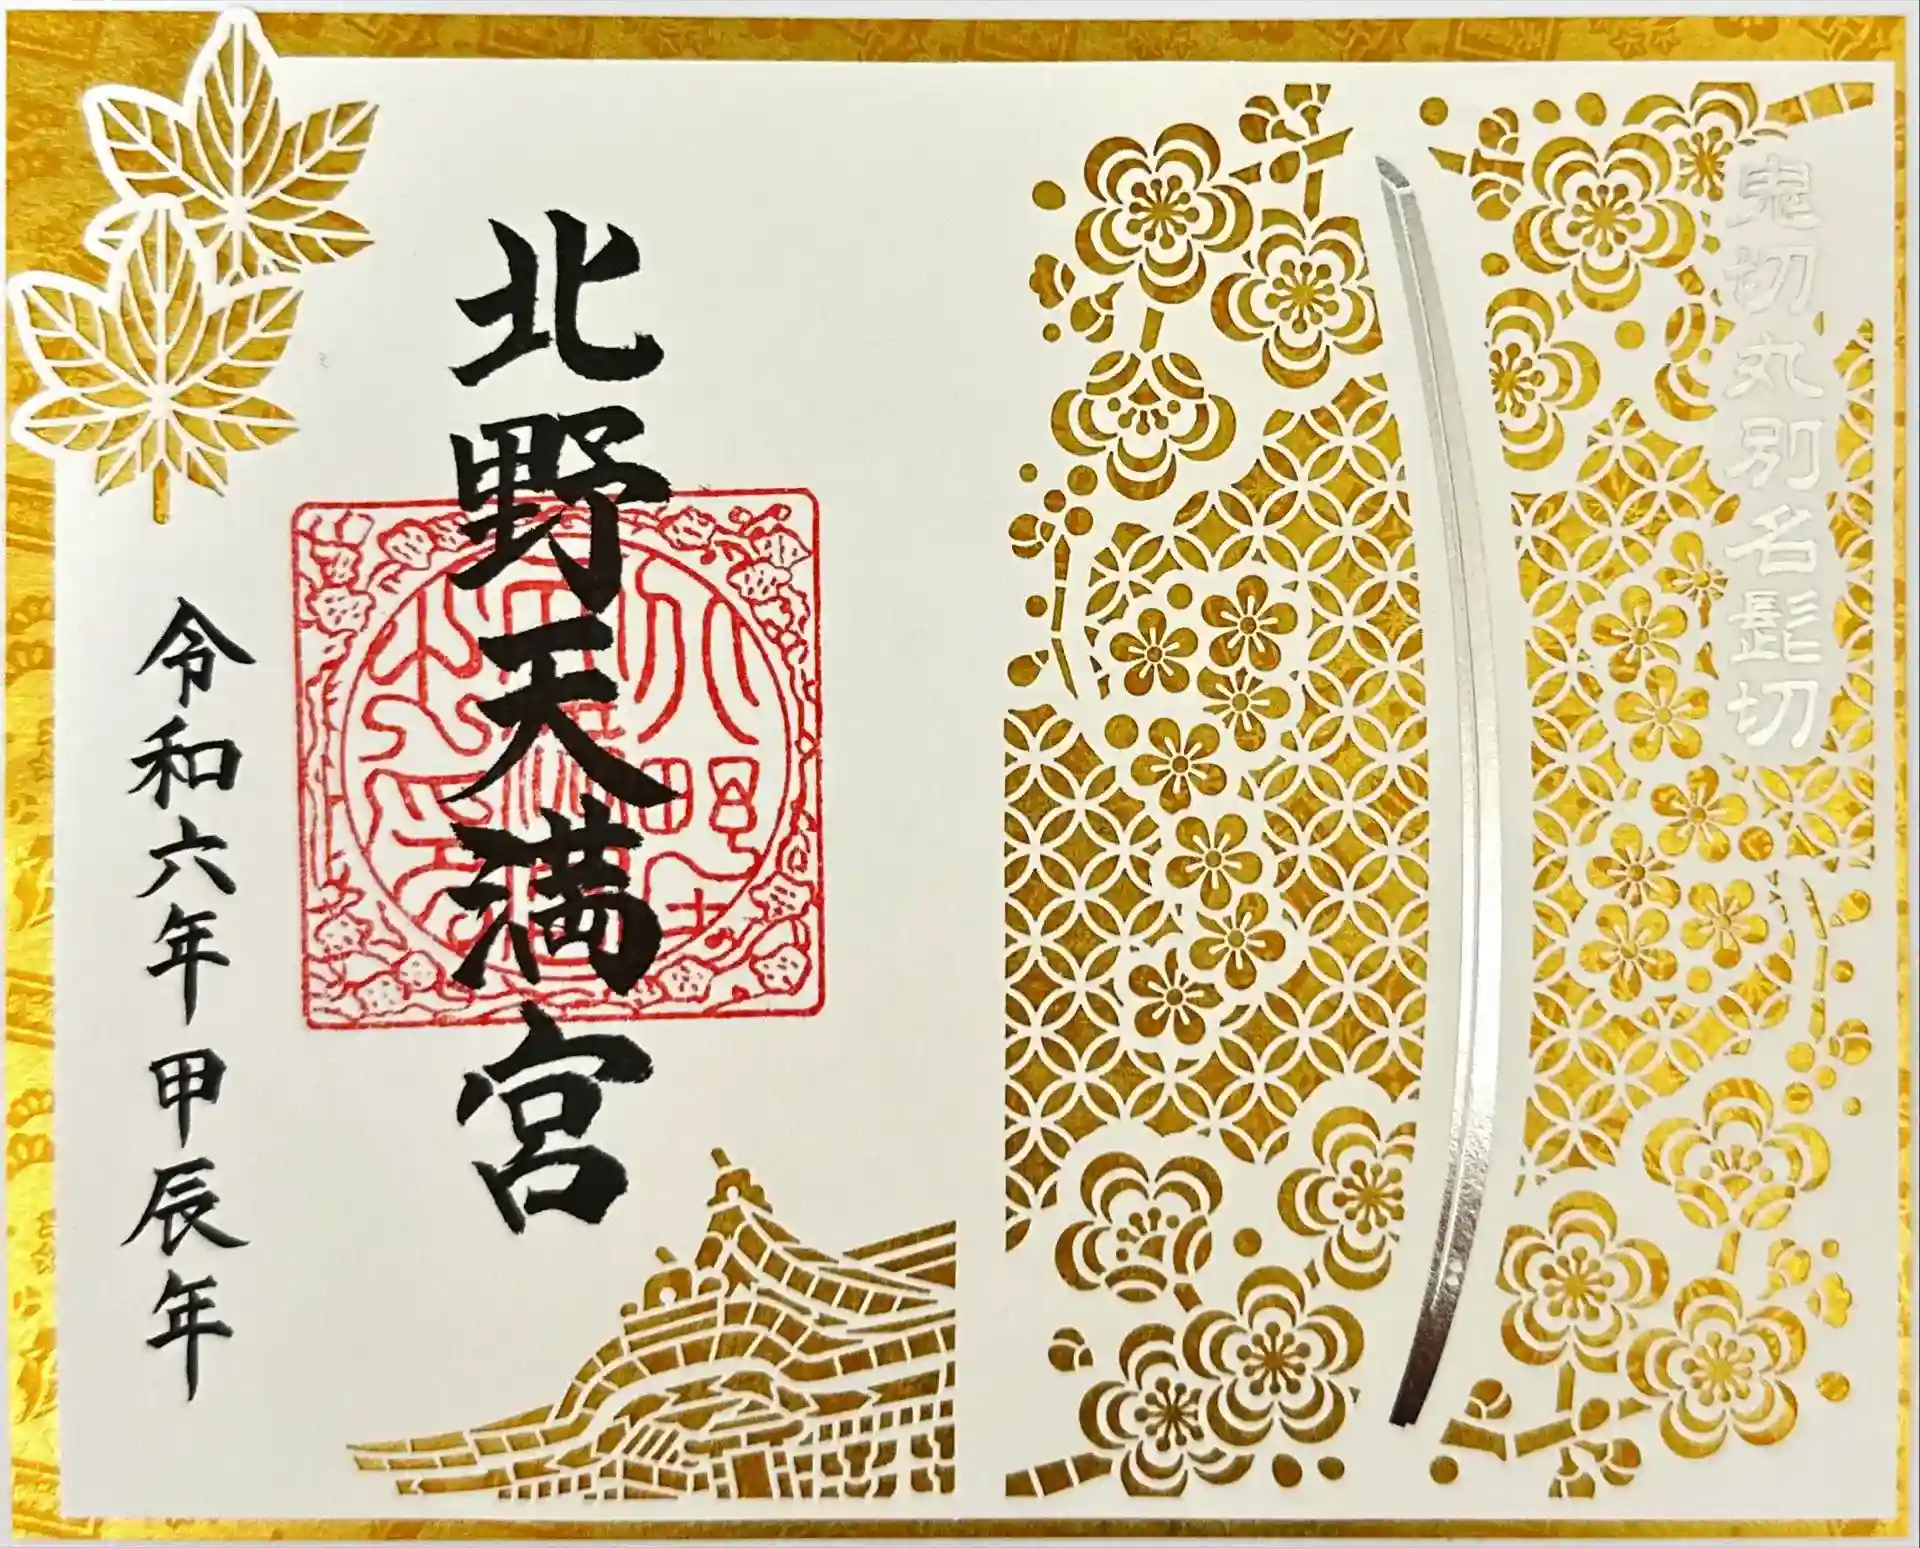 鬼切丸別名髭切
北野天満宮
令和六年 甲辰年